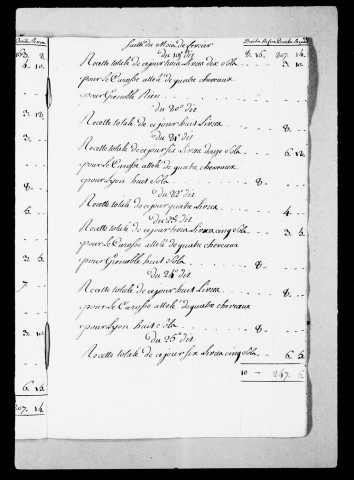 Suitte du Mois de fevrier
du 19e dit 8. 16. 207. 14.
Recette totale de ce jour trois Livres dix sols 3. 10.
pour le Carosse attelé de quatre chevaux
pour Grenoble Rien
du 20e dit
Recette totale de ce jour huit Livres 8.
du 21e dit
Recette totale de ce jour six Livres douze sols 6. 12.
pour le Carosse attelé de quatre chevaux
pour Lyon huit sols 8.
du 22e dit
Recette totale de ce jour quatre Livres 4.
du 23e dit
Recette totale de ce jour trois Livres cinq sols 3. 5.
pour le Carosse attelé de quatre chevaux
pour Grenoble huit sols 8.
du 24e dit
Recette totale de ce jour huit Livres 8.
pour le Carosse attelé de quatre chevaux
pour Lyon huit sols 8.
du 25e dit
Recette totale de ce jour six Livres cinq sols 6. 5.
10 247.